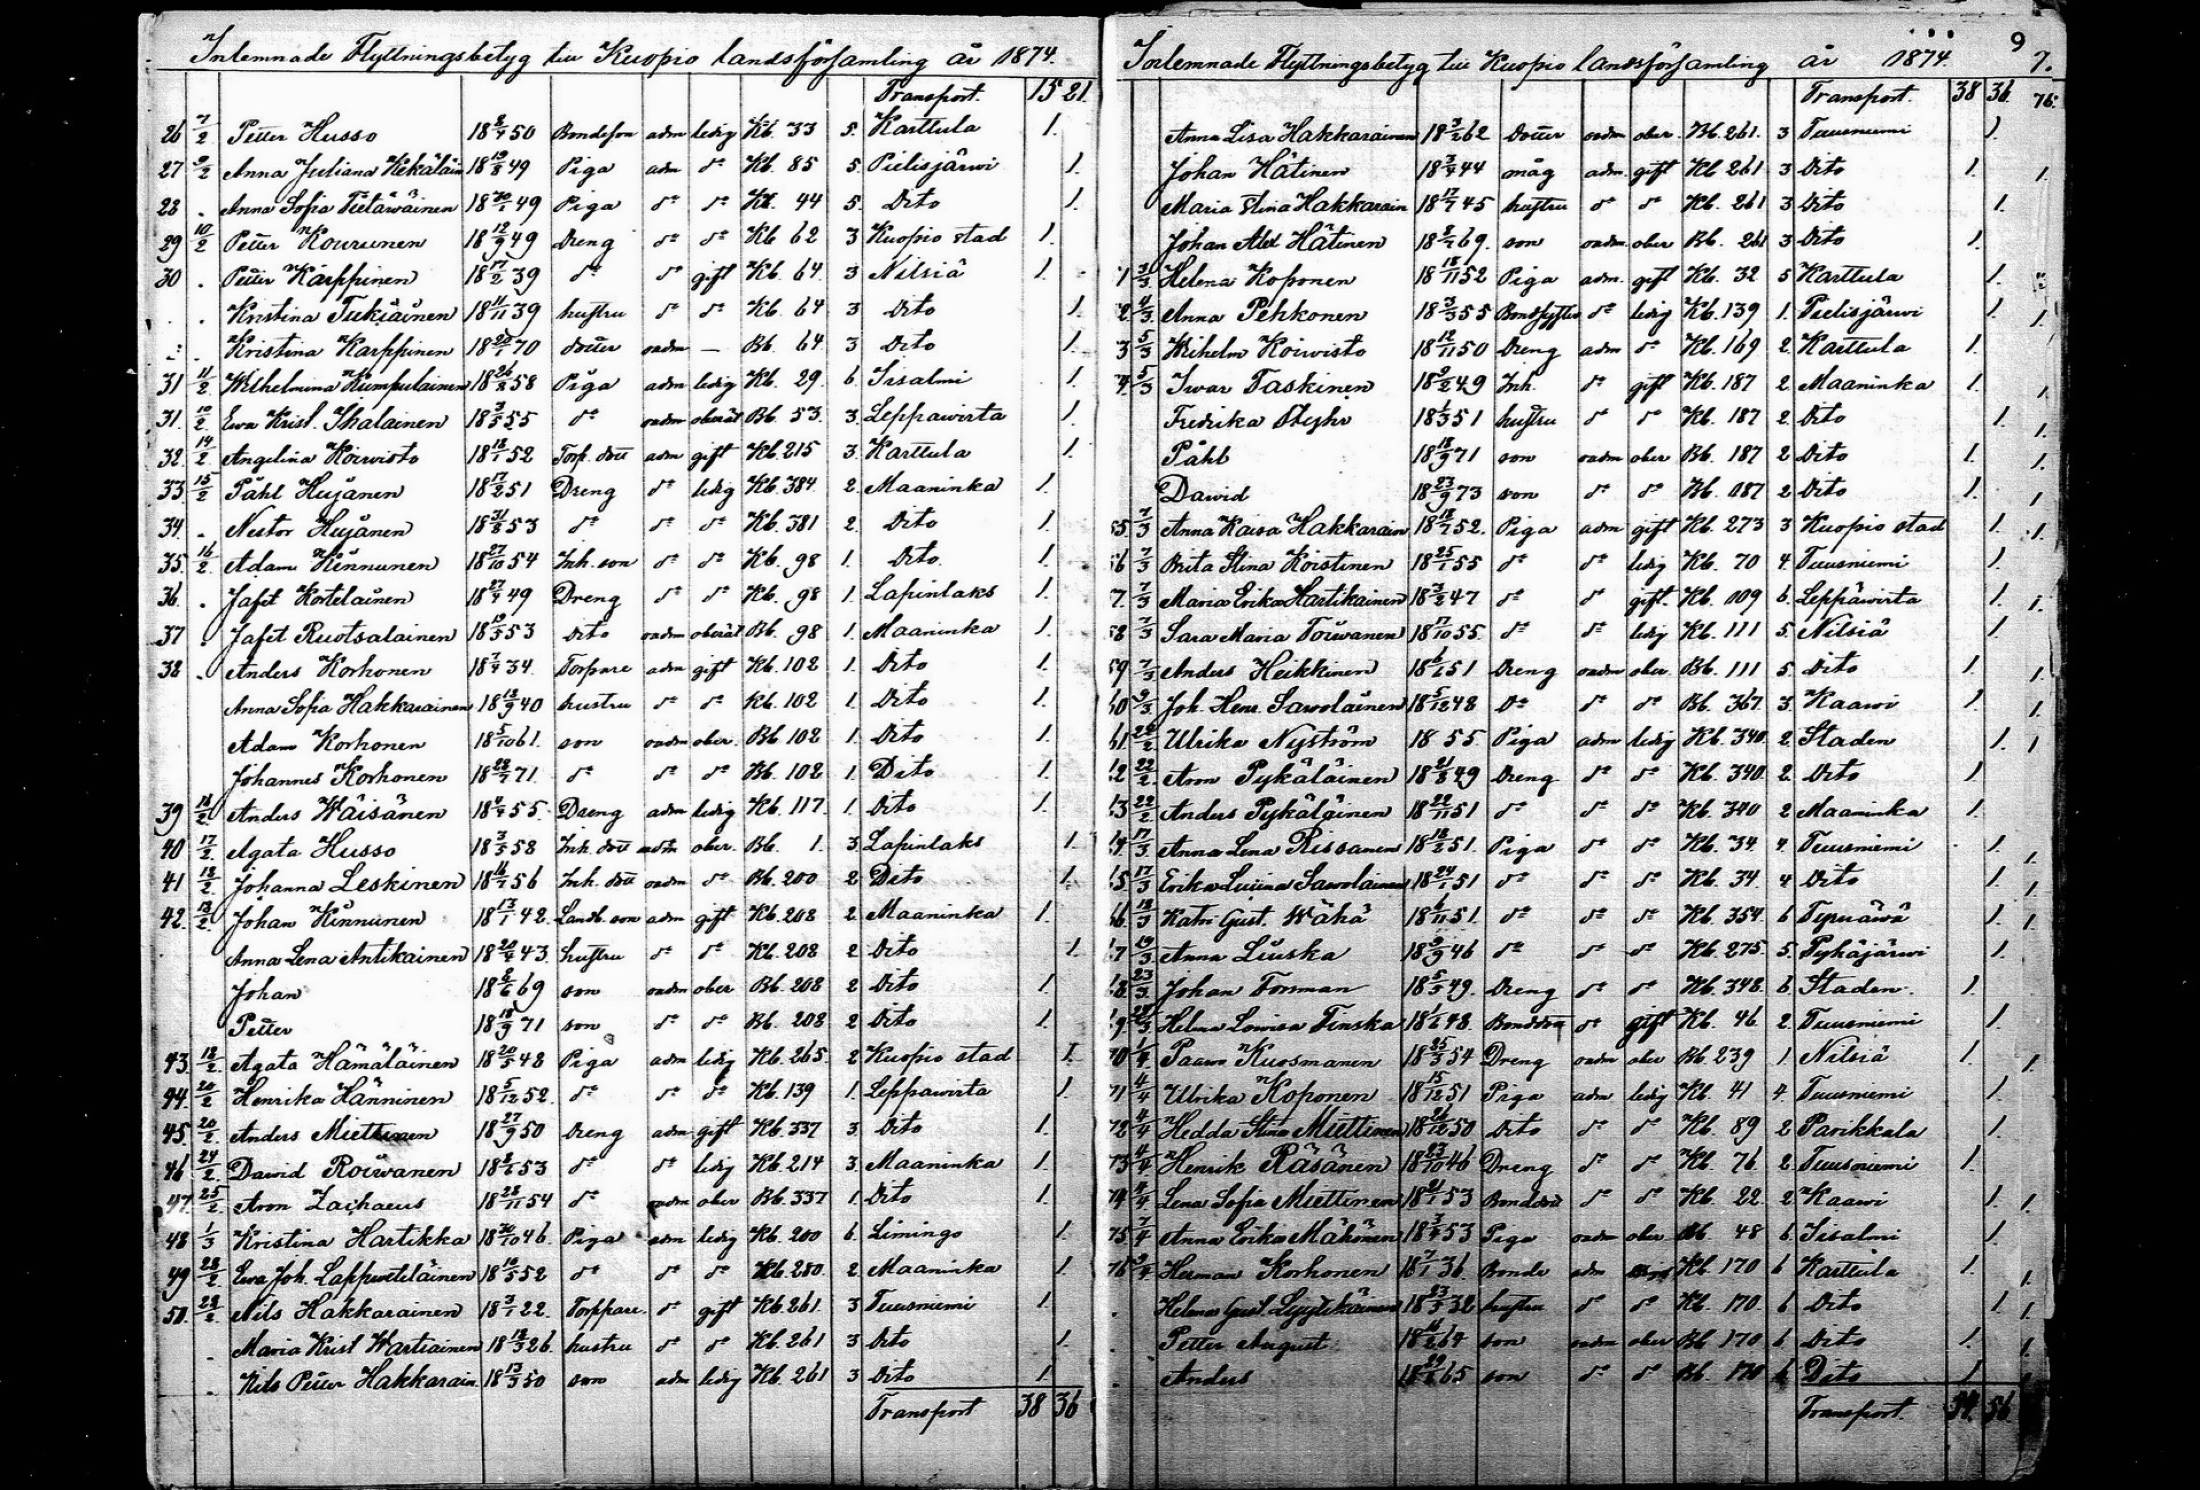 Inlemnade Flyttningsbetyg till Kuopio landsförsamling år 1874.
Transport. 15 21.
26 7/2 Petter Husso 18 50 Bondeson adm ledig Kb. 33 5. Karttula 1.
27 9/2 Anna Juliana Kekäläin 18 49 Piga adm do Kb. 85 5. Pielisjärwi 1.
28 . Anna Sofia Tietäwäinen 18 49 Piga do do Kb. 44 5. Dito 1.
29 10/2 Petter Kourunen 18 12/9 49 Dreng do do Kb 62 3 Kuopio stad 1.
30 . Petter Karppinen 18 17/2 39 do do gift Kb. 64. 3 Nilsiä 1.
. . Kristina Tukiäinen 18 11/11 39 hustru do do Kb. 64 3 Dito 1.
. . Kristina Karppinen 18 70 dotter oadm — Bb. 64 3 Dito 1.
31 11/2 Wilhelmina Kumpulainen 18 26/8 58 Piga adm ledig Kb. 29. 6. Iisalmi 1.
31. 10/2 Ewa Krist. Ihalainen 18 55 do oadm oberät Bb. 53. 3. Leppäwirta 1.
32. 14/2 Angelina Koiwisto 18 52 Torp. dott adm gift Kb. 215 3. Karttula 1.
33 15/2 Påhl Hujanen 18 17/2 51 Dreng do ledig Kb. 384. 2. Maaninka 1.
34. . Nestor Hujanen 18 31/8 53 do do do Kb. 381 2. Dito 1.
35. 16/2 Adam Kinnunen 18 27/10 54 Inh. son do do Kb. 98 1. Dito. 1.
36. . Jafet Kortelainen 18 49 Dreng do do Kb. 98 1. Lapinlaks 1.
37 . Jafet Ruotsalainen 18 53 Dito oadm oberät Bb. 98 1. Maaninka 1.
38 . Anders Korhonen 18 34. Torpare adm gift Kb. 102 1. Dito 1.
Anna Sofia Hakkarainen 18 40 hustru do do Kb. 102 1. Dito 1.
Adam Korhonen 18 5/10 61. son oadm ober. Bb 102 1. Dito 1.
Johannes Korhonen 18 71. do do do Bb. 102 1. Dito 1.
39 Anders Wäisänen 18 55. Dreng adm ledig Kb. 117. 1. Dito 1.
40 17/2 Agata Husso 18 58 Inh. dott oadm ober. Bb. 1. 3. Lapinlaks 1.
41 18/2 Johanna Leskinen 18 56 Inh. dott oadm do Bb. 200 2 Dito 1.
42. 18/2 Johan Kinnunen 18 13/1 42. Landb. son adm gift Kb. 208 2. Maaninka 1.
Anna Lena Antikainen 18 43. hustru do do Kb. 208 2 Dito 1.
Johan 18 69 son oadm ober Bb. 208 2 Dito 1.
Petter 18 18/9 71 son do do Bb. 208 2 Dito 1.
43. 18/2 Agata Hämäläinen 18 20/5 48 Piga adm ledig Kb. 265. 2 Kuopio stad 1.
44. 20/2 Henrika Hänninen 18 5/12 52. do do do Kb. 139 1. Leppäwirta 1.
45. 20/2 Anders Miettinen 18 27/9 50 Dreng adm gift Kb. 337 3. Dito 1.
46 24/2 Dawid Roiwanen 18 53 do do ledig Kb. 214 3. Maaninka 1.
47. 25/2 Aron Zachaeus 18 28/11 54 do oadm ober Bb. 337 1. Dito 1.
48 1/3 Kristina Hartikka 18 30/10 46. Piga adm ledig Kb. 200 6. Limingo 1.
49 28/2 Ewa Joh. Lappweteläinen 18 52 do do do Kb. 280. 2. Maaninka 1.
50. 28/2 Nils Hakkarainen 18 3/1 22. Torppare. do gift Kb. 261. 3 Tuusniemi 1.
Maria Krist Wartiainen 18 26. hustru do do Kb. 261 3 Dito 1.
Nils Petter Hakkarain. 18 13/3 50 son adm ledig Kb. 261 3 Dito 1.
Transport 38 36
9
Inlemnade Flyttningsbetyg till Kuopio landsförsamling år 1874. 7.
Transport. 38 36. 76.
Anna Lisa Hakkarainen 18 3/2 62 dotter oadm ober. Bb. 261. 3 Tuusniemi 1.
Johan Hätinen 18 44 måg adm. gift Kb 261 3 Dito 1. 1.
Maria Stina Hakkarain 18 45 hustru do do Kb. 261 3 Dito 1.
Johan Alex Hätinen 18 69. son oadm. ober Bb. 261 3 Dito 1.
1 Helena Koponen 18 18/11 52 Piga adm. gift Kb. 32 5 Karttula 1.
2. 4/3 Anna Pehkonen 18 3/3 55 do ledig Kb. 139 1. Pielisjärwi 1. 1.
3 5/3 Wilhelm Koiwisto 18 12/11 50 Dreng adm do Kb. 169 2. Karttula 1.
4. 5/3 Iwar Taskinen 18 9/2 49 Inh. do gift Kb. 187 2. Maaninka 1. 1.
Fredrika 18 1/3 51 hustru do do Kb. 187 2. Dito 1. 1.
Påhl 18 18/9 71 son oadm ober Bb. 187 2 Dito 1. 1.
Dawid 18 23/9 73 son do do Bb. 187 2 Dito 1. 1
55. 7/3 Anna Kaisa Hakkarain 18 52. Piga adm gift Kb. 273 3 Kuopio stad 1. 1.
56 7/3 Brita Stina Koistinen 18 25/1 55 do do ledig Kb. 70 4. Tuusniemi 1.
7. 7/3 Maria Erika Hartikainen 18 3/2 47 do do gift. Kb. 109 6. Leppäwirta 1. 1.
58 7/3 Sara Maria Toiwanen 18 17/10 55. do do ledig Kb. 111 5. Nilsiä 1.
59 7/3 Anders Heikkinen 18 51 Dreng oadm ober. Bb. 111 5. Dito 1. 1.
60 9/3 Joh. Henr. Sawolainen 18 5/12 48 Do do do Bb. 367. 3. Kaawi 1. 1.
61 Ulrika Nyström 18 55. Piga adm ledig Kb. 340. 2. Staden 1. 1
2 22/2 Aron Pykäläinen 18 21/8 49 Dreng do do Kb. 340. 2. Dito 1
3 22/2 Anders Pykäläinen 18 22/11 51 do do do Kb. 340 2 Maaninka 1.
4. 17/3 Anna Lena Rissanen 18 18/2 51. Piga do do Kb. 34. 4. Tuusniemi 1. 1.
5 17/3 Erika Sawolainen 18 24/1 51 do do do Kb. 34. 4 Dito 1. 1.
6. 18/3 Katri Gust. Wähä 18 6/11 51. do do do Kb. 354. 6 Tyrnäwä 1. 1.
7 19/3 Anna Liuska 18 9/9 46 do do do Kb. 275. 5. Pyhäjärwi 1.
8. 23/3 Johan Forsman 18 5/5 49. Dreng do do Kb. 348. 6. Staden. 1.
9. Helma Lowisa Tinska 18 48. Bonddott do gift Kb. 46 2. Tuusniemi 1.
70 1/4 Paawo Kuosmanen 18 25/3 54 Dreng oadm ober Bb. 239 1 Nilsiä 1. 1.
71 4/4 Ulrika Koponen 18 15/12 51 Piga adm ledig Kb. 41 4. Tuusniemi 1.
72 4/4 Hedda Stina Miettinen 18 50 Dito do do Kb. 89 2 Parikkala 1.
73 4/4 Henrik Räsänen 18 23/10 46 Dreng do do Kb. 76 2. Tuusniemi 1.
74 4/4 Lena Sofia Miettinen 18 21/1 53 Bonddott do do Kb. 22. 2 Kaawi 1. 1.
75 7/4 Anna Erika Mähönen 18 53 Piga oadm ober Bb. 48 6. Iisalmi 1.
76 9/4 Herman Korhonen 18 7/1 36. Bonde adm Kb. 170 6 Karttula 1. 1.
Helena Gust Lyytikäinen 18 23/3 32 hustru do do Kb. 170 6 Dito 1. 1.
Petter August 18 64 son oadm ober Bb 170 6 Dito 1. 1.
Anders 18 29/6 65 son do do Bb. 170 6 Dito 1
Transport. 54. 56.